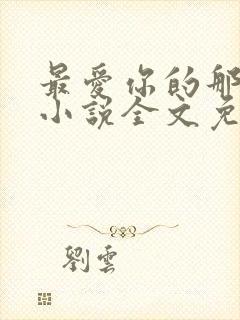 最愛你的那
小說全文免
劉雲